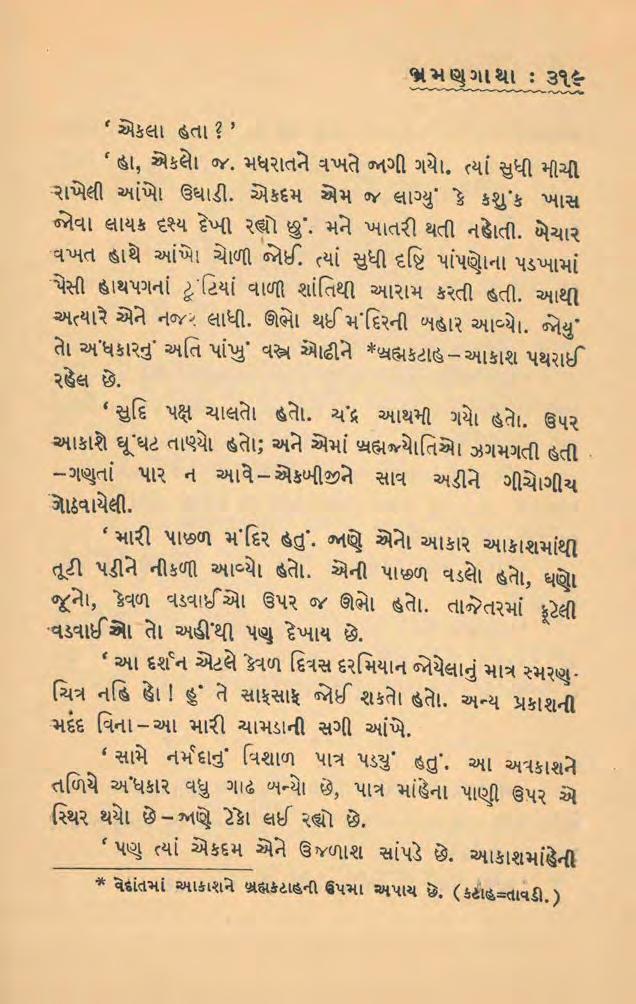 ભ્રમણગાથા : ૩૧૯
‘ એકલા હતા ? ’
‘ હા, એકલો જ. મધરાતને વખતે જાગી ગયો. ત્યાં સુધી મીચી
રાખેલી આંખો ઉઘાડી. એકદમ એમ જ લાગ્યું કે કશુંક ખાસ
જોવા લાયક દૃશ્ય દેખી રહ્યો છું. મને ખાતરી થતી નહોતી. બેચાર
વખત હાથે આંખો ચોળી જોઈ. ત્યાં સુધી દૃષ્ટિ પાંપણોના પડખામાં
પેસી હાથપગનાં ટૂંટિયાં વાળી શાંતિથી આરામ કરતી હતી. આથી
અત્યારે એને નજર લાધી. ઊભો થઈ મંદિરની બહાર આવ્યો. જોયું
તો અંધકારનું અતિ પાંખું વસ્ત્ર ઓઢીને *બ્રહ્મકટાહ – આકાશ પથરાઈ
રહેલ છે.
‘ સુદિ પક્ષ ચાલતો હતો. ચંદ્ર આથમી ગયો હતો. ઉપર
આકાશે ઘૂંઘટ તાણ્યો હતો; અને એમાં બ્રહ્મજ્યોતિઓ ઝગમગતી હતી
–ગણતાં પાર ન આવે – એકબીજીને સાવ અડીને ગીચોગીચ
ગોઠવાયેલી.
‘ મારી પાછળ મંદિર હતું. જાણે એનો આકાર આકાશમાંથી
તૂટી પડીને નીકળી આવ્યો હતો. એની પાછળ વડલો હતો, ઘણો
જૂનો, કેવળ વડવાઈઓ ઉપર જ ઊભો હતો. તાજેતરમાં ફૂટેલી
વડવાઈઓ તો અહીંથી પણ દેખાય છે.
‘ આ દર્શન એટલે કેવળ દિવસ દરમિયાન જોયેલાનું માત્ર સ્મરણ-
ચિત્ર નહિ હો ! હું તે સાફસાફ જોઈ શકતો હતો. અન્ય પ્રકાશની
મદદ વિના – આ મારી ચામડાની સગી આંખે.
‘ સામે નર્મદાનું વિશાળ પાત્ર પડ્યું હતું. આ અવકાશને
તળિયે અંધકાર વધુ ગાઢ બન્યો છે, પાત્ર માંહેના પાણી ઉપર એ
સ્થિર થયો છે – જાણે ટેકો લઈ રહ્યો છે.
‘ પણ ત્યાં એકદમ એને ઉજળાશ સાંપડે છે. આકાશમાંહેની
* વેદાંતમાં આકાશને બ્રહ્મકટાહની ઉપમા અપાય છે. (કટાહ=તાવડી.)